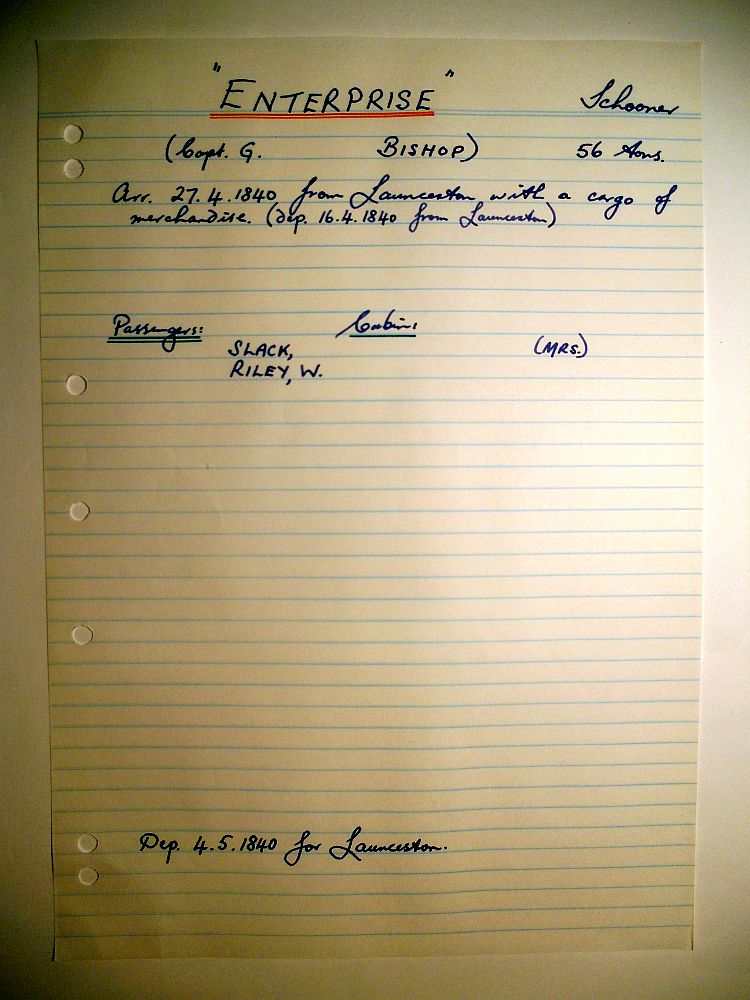 "ENTERPRISE" Schooner
(Capt. G. BISHOP) 56 tons.
Arr. 27.4.1840 from Launceston with a cargo of
merchandise. (dep. 16.4.1840 from Launceston)
Passengers: Cabin:
SLACK, (MRS.)
RILEY, W.
Dep. 4.5.1840 for Launceston.